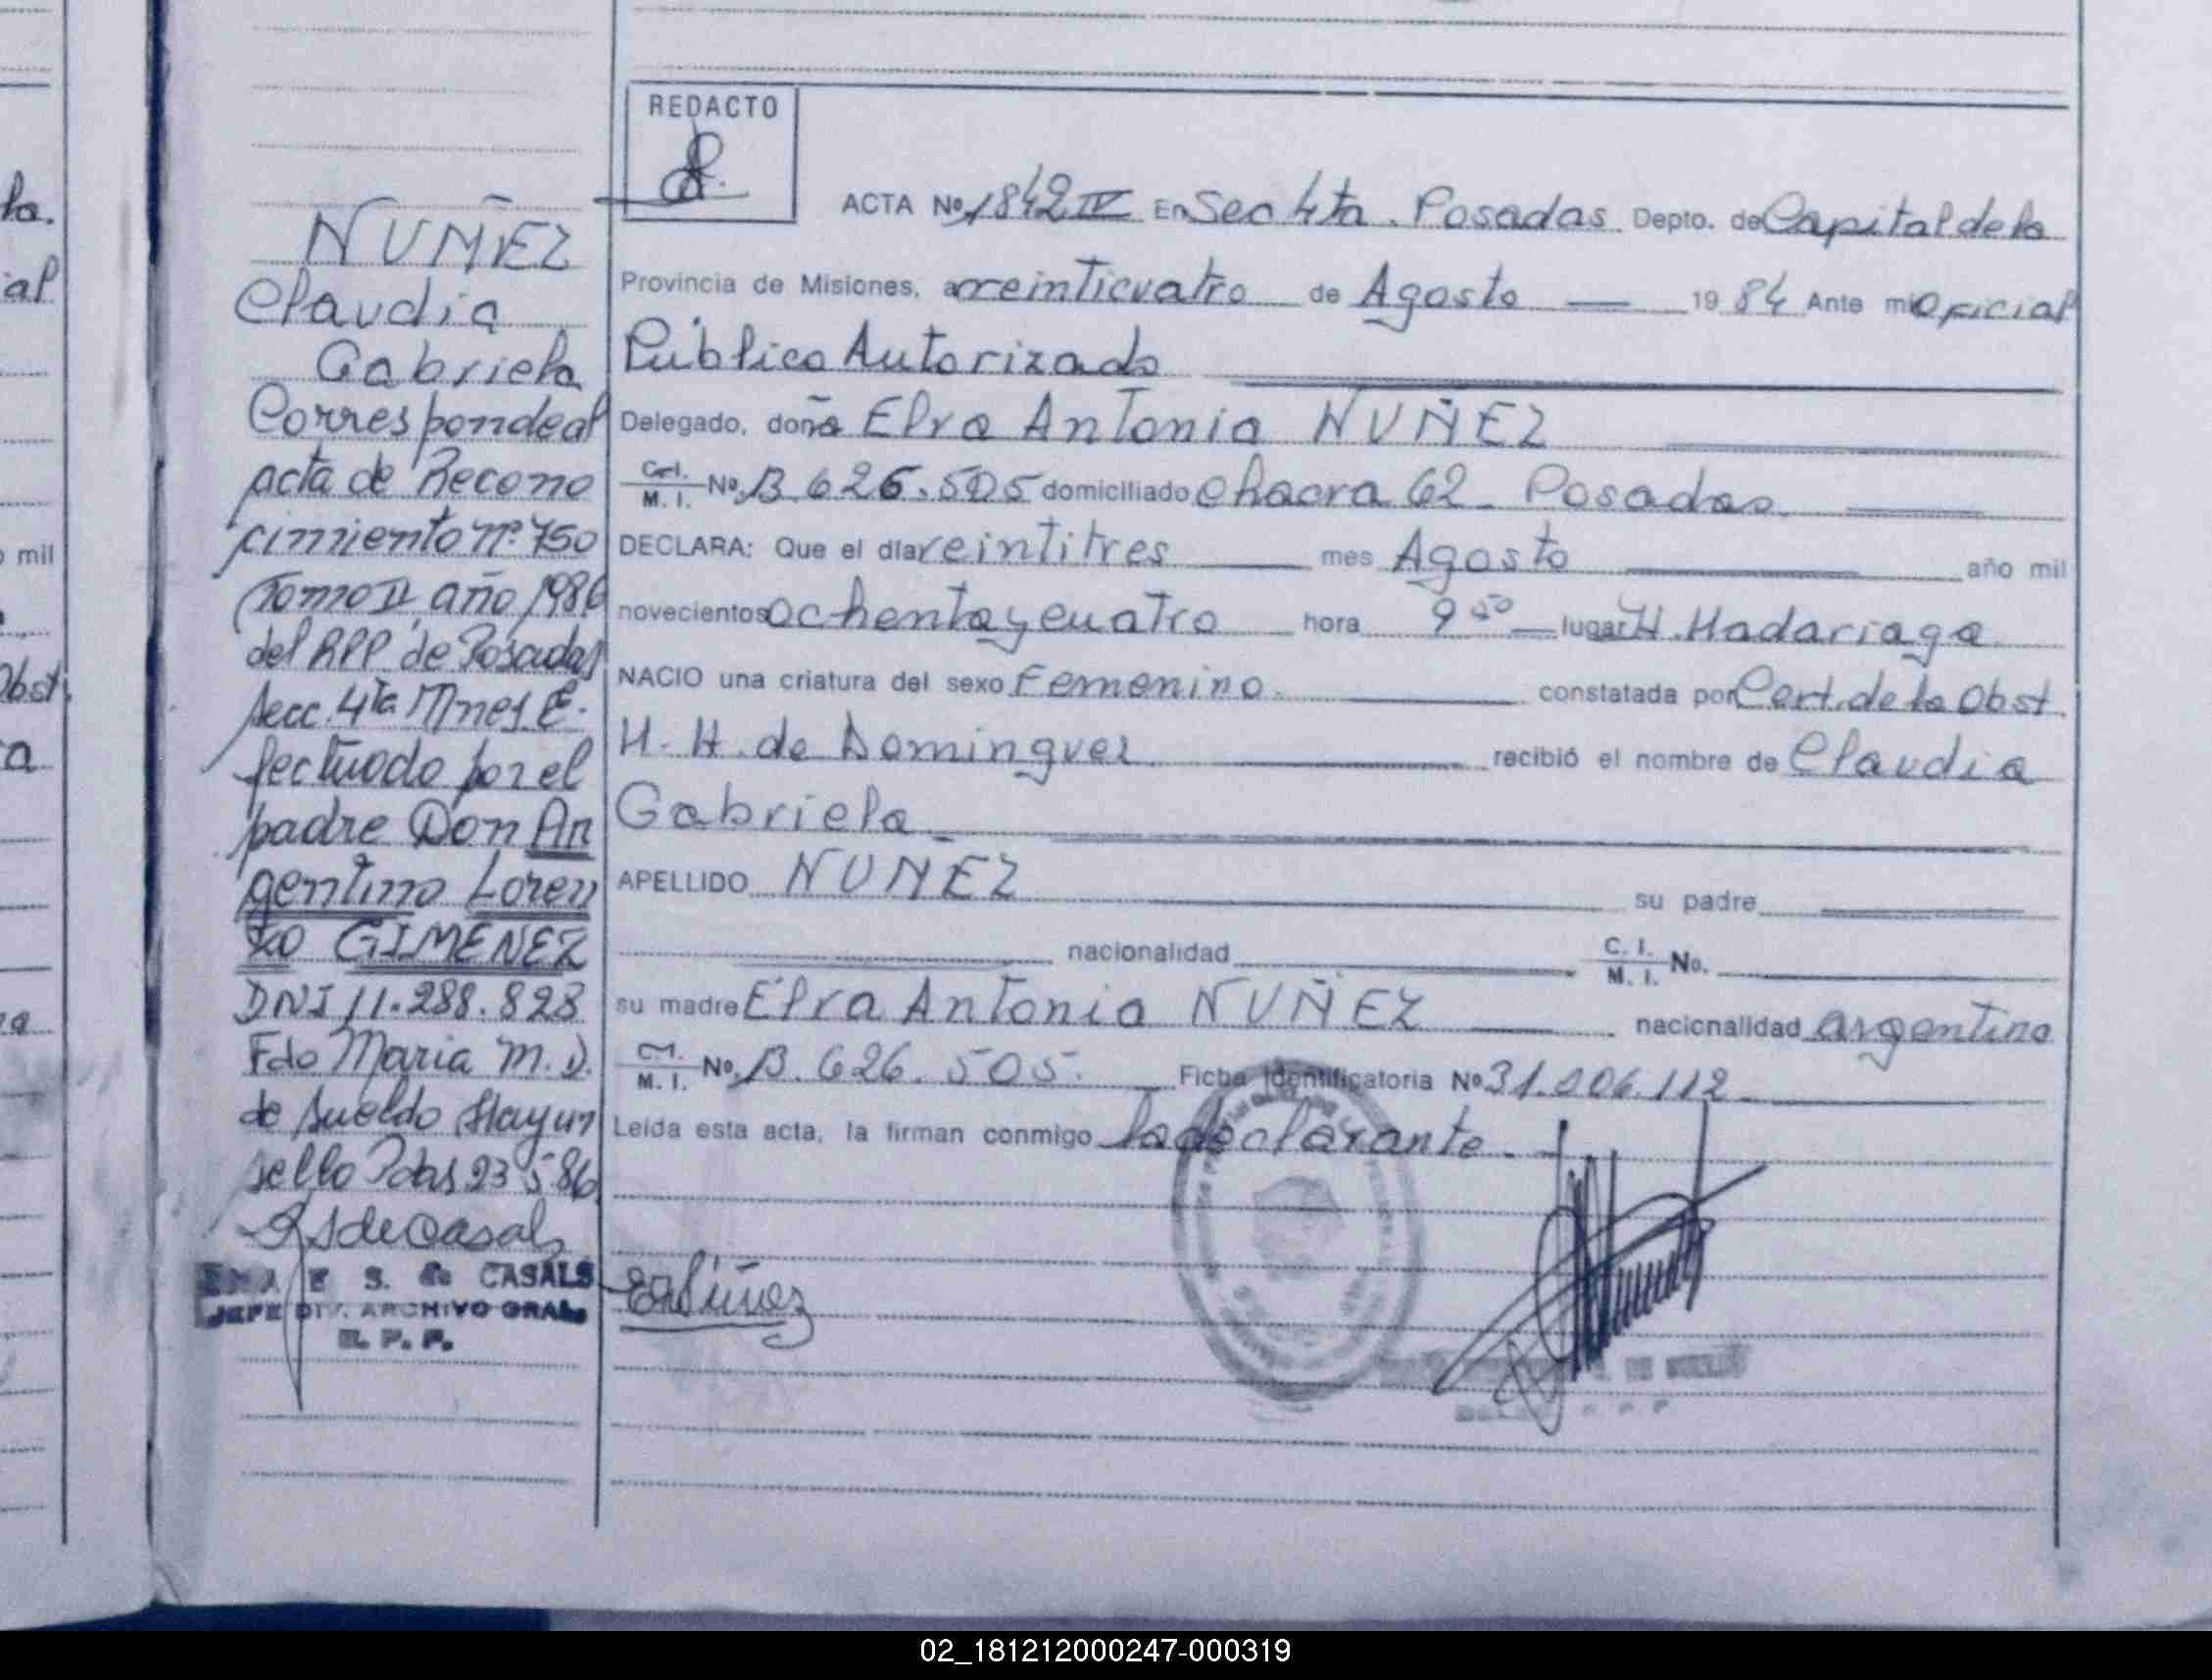 la.
al
mil
Obst.
a
REDACTO
NUÑEZ
Claudia
Gabriela
Corresponde al
acta de Recono
cimiento nº 750
Tomo II, año 1986
del RPP de Posadas
Secc. 4ta Mnes E-
fectuado por el
padre Don Ar
gentino Loren
zo GIMENEZ
DNI 11.288.823
Fdo Maria M. D.
de Sueldo Hay un
sello Pdas 23 5 86
S de Casals
E S. de CASALS
JEFE DIV. ARCHIVO GRAL.
R. P. P.
ACTA Nº 1842 IV En Sec 4ta. Posadas Depto. de Capital de la
Provincia de Misiones, a veinticuatro de Agosto 19 84 Ante mi Oficial
Público Autorizado
Delegado, doña Elva Antonia NUÑEZ
C. I. M. I. Nº 13.626.505 domiciliado Chacra 62 - Posadas
DECLARA: Que el día veintitres mes Agosto año mil
novecientos ochenta y cuatro hora 9 50 lugar H. Madariaga
NACIO una criatura del sexo Femenino. constatada por Cert. de la Obst.
H. H. de Dominguez recibió el nombre de Claudia
Gabriela
APELLIDO NUÑEZ su padre
nacionalidad C. I. M. I. No.
su madre Elva Antonia NUÑEZ nacionalidad argentina
C. I. M. I. Nº 13.626.505. Ficha identificatoria Nº 31.006.112
Leída esta acta, la firman conmigo la declarante.
ENúñez
02_181212000247-000319